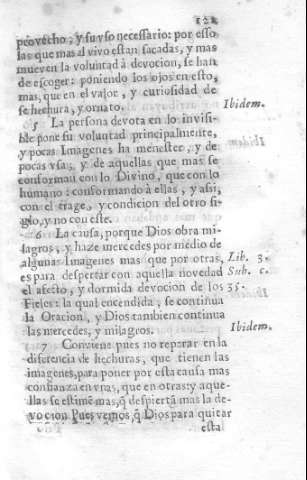 122
provecho, y su vso necessario: por esso
las que mas al vivo estan sacadas, y mas
mueven la voluntad à devocion, se han
de escoger: poniendo los ojos en esto,
mas, que en el valor, y curiosidad de
su hechura, y ornato. Ibidem.
5 La persona devota en lo invisi-
ble pone su voluntad principalmente,
y pocas Imagenes ha menester, y de
pocas vsa, y de aquellas que mas se
conforman con lo Divino, que con lo
humano: conformando à ellas, y asi,
con el trage, y condicion del otro si-
glo, y no con este.
6 La causa, porque Dios obra mi-
lagros, y haze mercedes por medio de
algunas Imagenes mas que por otras, Lib. 3.
es para despertar con aquella novedad Sub. c.
el afecto, y dormida devocion de los 35.
Fieles: la qual encendida, se continua
la Oracion, y Dios tambien continua
las mercedes, y milagros. Ibidem.
7 Conviene pues no reparar en la
diferencia de hechuras, que tienen las
imagenes, para poner por esta causa mas
confianza en vnas, que en otras: y aque-
llas se estimē mas, q̄ despiertā mas la de-
vocion Pues vemos, q̄ Dios para quitar
esta